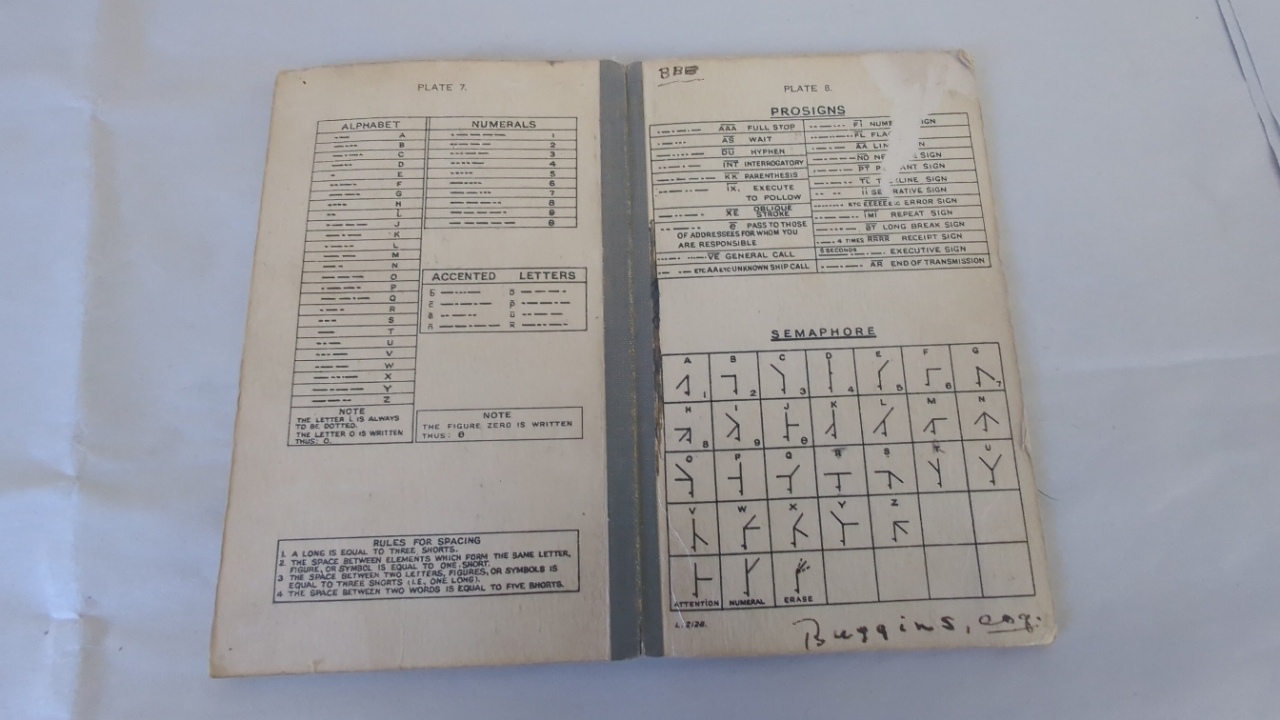 PLATE 7.
ALPHABET
A
B
C
D
E
F
G
H
I
J
K
L
M
N
O
P
Q
R
S
T
U
V
W
X
Y
Z
NOTE
THE LETTER I IS ALWAYS
TO BE DOTTED.
THE LETTER O IS WRITTEN
THUS: O.
NUMERALS
1
2
3
4
5
6
7
8
9
0
ACCENTED LETTERS
NOTE
THE FIGURE ZERO IS WRITTEN
THUS: θ
RULES FOR SPACING
1. A LONG IS EQUAL TO THREE SHORTS.
2. THE SPACE BETWEEN ELEMENTS WHICH FORM THE SAME LETTER,
FIGURE, OR SYMBOL IS EQUAL TO ONE SHORT.
3 THE SPACE BETWEEN TWO LETTERS, FIGURES, OR SYMBOLS IS
EQUAL TO THREE SHORTS (I.E., ONE LONG).
4 THE SPACE BETWEEN TWO WORDS IS EQUAL TO FIVE SHORTS.
PLATE 8.
PROSIGNS
AAA FULL STOP
AS WAIT
DU HYPHEN
INT INTERROGATORY
KK PARENTHESIS
IX. EXECUTE
TO FOLLOW
XE OBLIQUE
STROKE
θ PASS TO THOSE
OF ADDRESSEES FOR WHOM YOU
ARE RESPONSIBLE
VE GENERAL CALL
ETC AA ETC UNKNOWN SHIP CALL
FI NUME IGN
FL FLA
AA LIN N
NO NE SIGN
PT P ANT SIGN
TL T LINE SIGN
II SE RATIVE SIGN
ETC EEEEEE ERROR SIGN
IMI REPEAT SIGN
BT LONG BREAK SIGN
4 TIMES RRRR RECEIPT SIGN
5 SECONDS EXECUTIVE SIGN
AR END OF TRANSMISSION
SEMAPHORE
A B C D E F G
1 2 3 4 5 6 7
H I J K L M N
8 9 θ
O P Q R S T U
V W X Y Z
ATTENTION NUMERAL ERASE
Buggins, esq.